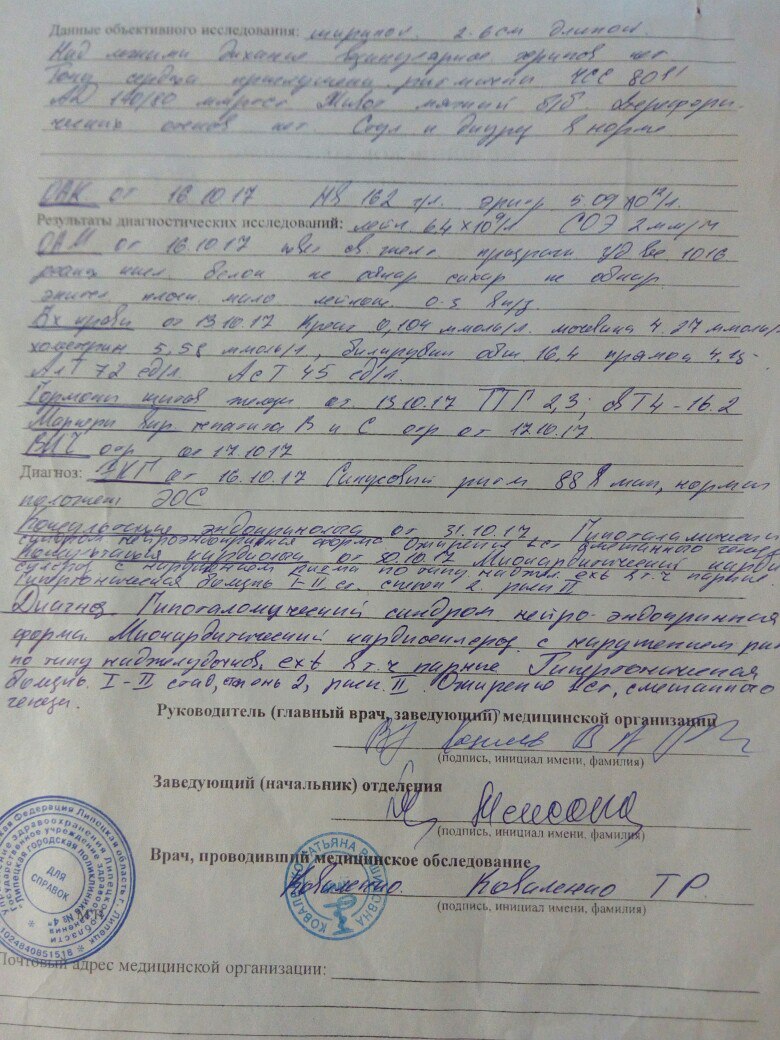 Данные объективного исследования: шириной 2-6см длиной
Над легкими дыхание везикулярное хрипов нет
Тоны сердца приглушены ритмичны ЧСС 80
АД 140/80 мм рт ст Живот мягкий б/б. Перифери-
ческих отеков нет. Стул и диурез в норме
ОАК от 16.10.17 Нв 162 г/л. эритр 5.09 х 10¹²/л.
Результаты диагностических исследований: лейк. 6.4 × 10⁹/л СОЭ 2 мм/ч
ОАМ от 16.10.17 цвет св. желт. прозрачн уд вес 1016
реакц кисл. белок не обнар сахар не обнар
эпител плоск. мало лейкоц. 0-3 в п/з.
Б/х крови от 13.10.17 Креат 0,104 ммоль/л. мочевина 4.27 ммоль/л
холестерин 5,58 ммоль/л, билирубин общ. 16,4 прямой 4,1
АлТ 72 ед/л АсТ 45 ед/л.
Гормоны щитов. железы от 13.10.17 ТТГ 2,3; вТ4 - 16.2
Маркеры вир гепатита В и С отр от 17.10.17.
ВИЧ отр от 17.10.17
Диагноз: ЭКГ от 16.10.17 Синусовый ритм 88 в мин, нормал
положен ЭОС
Консультация эндокринолога от 31.10.17 Гипоталамический
синдром нейроэндокринная форма Ожирение ст смешанного генеза
Консультация кардиолога от 30.10.17 Миокардитический кардио
склероз с нарушением ритма по типу наджел. exb в т.ч парные
Гипертоническая болезнь I-II ст. степен 2. риск II
Диагноз Гипоталомический синдром нейро-эндокринная
форма. Миокардитический кардиосклероз с нарушением рит
по типу наджелудочков. exb в т.ч парные Гипертоническая
болезнь I-II стад, степень 2, риск II. Ожирение ст, смешанного
генеза.
Руководитель (главный врач, заведующий) медицинской организации
(подпись, инициал имени, фамилия)
Заведующий (начальник) отделения
(подпись, инициал имени, фамилия)
Врач, проводивший медицинское обследование
Коваленко Коваленко Т.Р.
(подпись, инициал имени, фамилия)
КОВАЛЕНКО ТАТЬЯНА РАШИТОВНА
ДЛЯ СПРАВОК
1024840851518
Почтовый адрес медицинской организации: